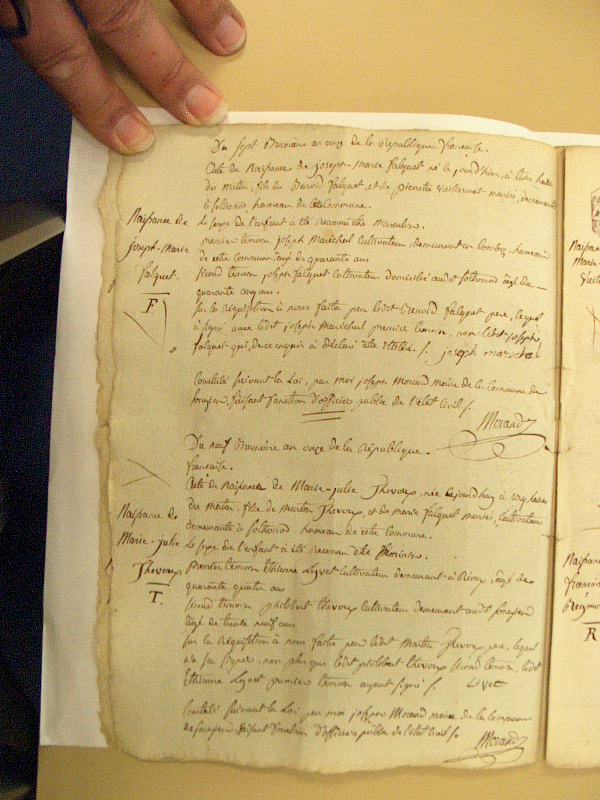 Du sept Brumaire an onze de la République française.
Acte de Naissance de joseph Marie falquet né le jourd'hier, à
du matin, fils de Benoid falquet, et de pierrette mariés, demeurants
à Sothonod hameau de cette Commune.
Naissance de
joseph-Marie
falquet.
F.
le sexe de l'enfant à été reconnu être Masculin.
premier témoin joseph Maréchal Cultivateur, demeurant en hameau
de cette Commune âgé de quarante ans
second témoin joseph falquet Cultivateur domicilié audt sothonod âgé de
quarante ans.
sur la Réquisition à nous faite par ledt Benoid falquet père, lequel
à signé avec ledit joseph Maréchal premier témoin, non ledit joseph
falquet qui, de ce enquis à déclaré être illitéré ./. joseph marechal
Constaté suivant la Loi, par moi joseph Morand maire de la Commune de
songieu, faisant fonction d'officier public de l'état Civil ./.
Morand
Du neuf Brumaire an onze de la République
française.
Naissance de
Marie-julie
Thevoux
T.
Acte de Naissance de Marie-julie Thevoux, née cejourd'huy à cinq heures
du Matin, fille de Martin Thevoux, et de marie falquet mariés, Cultivateurs
demeurants à sothonod hameau de cette Commune.
le sexe de l'enfant à été reconnu être féminin.
premier témoin Etienne Lyvet Cultivateur demeurant à âgé de
quarante quatre ans
second témoin philibert thevoux cultivateur demeurant audt
âgé de trente neuf ans
sur la Réquisition à nous faite par ledit Martin Thevoux père, lequel
n'a su signer, non plus que ledit philibert thevoux second témoin, ledt
Etienne Lyvet premier témoin ayant signé ./. Livet
Constaté suivant la Loi par moi joseph Morand maire de la commune
de songieu, faisant fonction d'officier public de l'état Civil ./.
Morand
Naissance
Marie
Naissance
françois
R